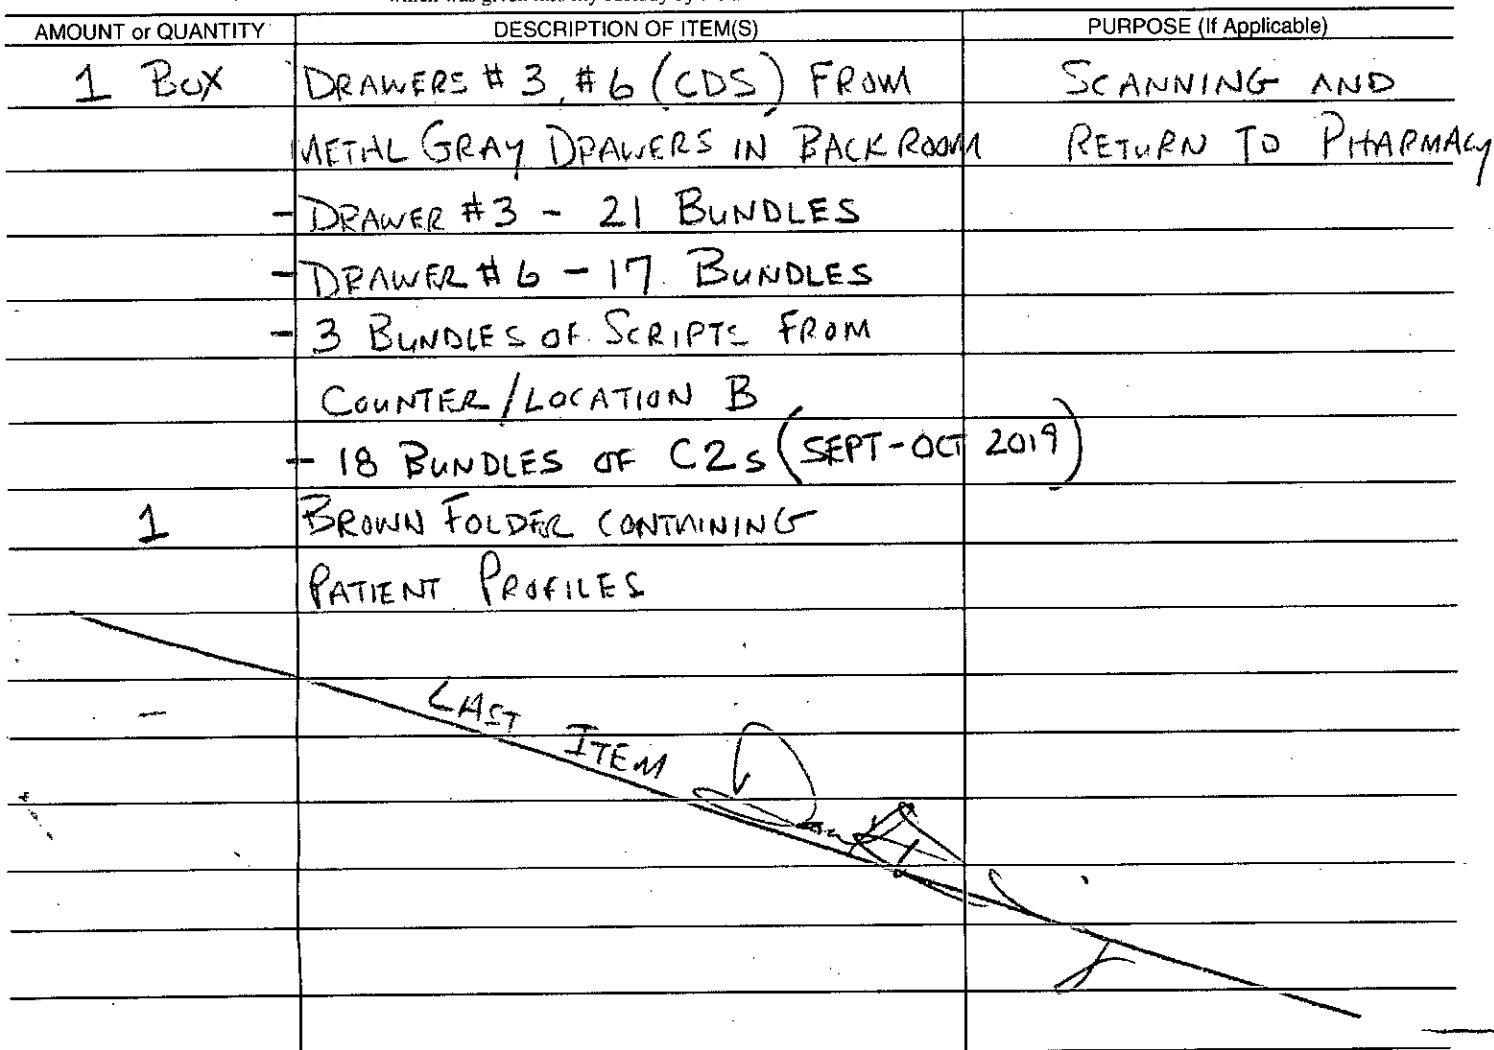 AMOUNT or QUANTITY DESCRIPTION OF ITEM(S) PURPOSE (If Applicable)
1 BOX DRAWERS # 3, #6 (CDS) FROM SCANNING AND
METAL GRAY DRAWERS IN BACK ROOM RETURN TO PHARMACY
- DRAWER #3 - 21 BUNDLES
- DRAWER # 6 - 17 BUNDLES
- 3 BUNDLES OF SCRIPTS FROM
COUNTER/LOCATION B
- 18 BUNDLES OF C2s (SEPT-OCT 2019)
1 BROWN FOLDER CONTAINING
PATIENT PROFILES
LAST ITEM